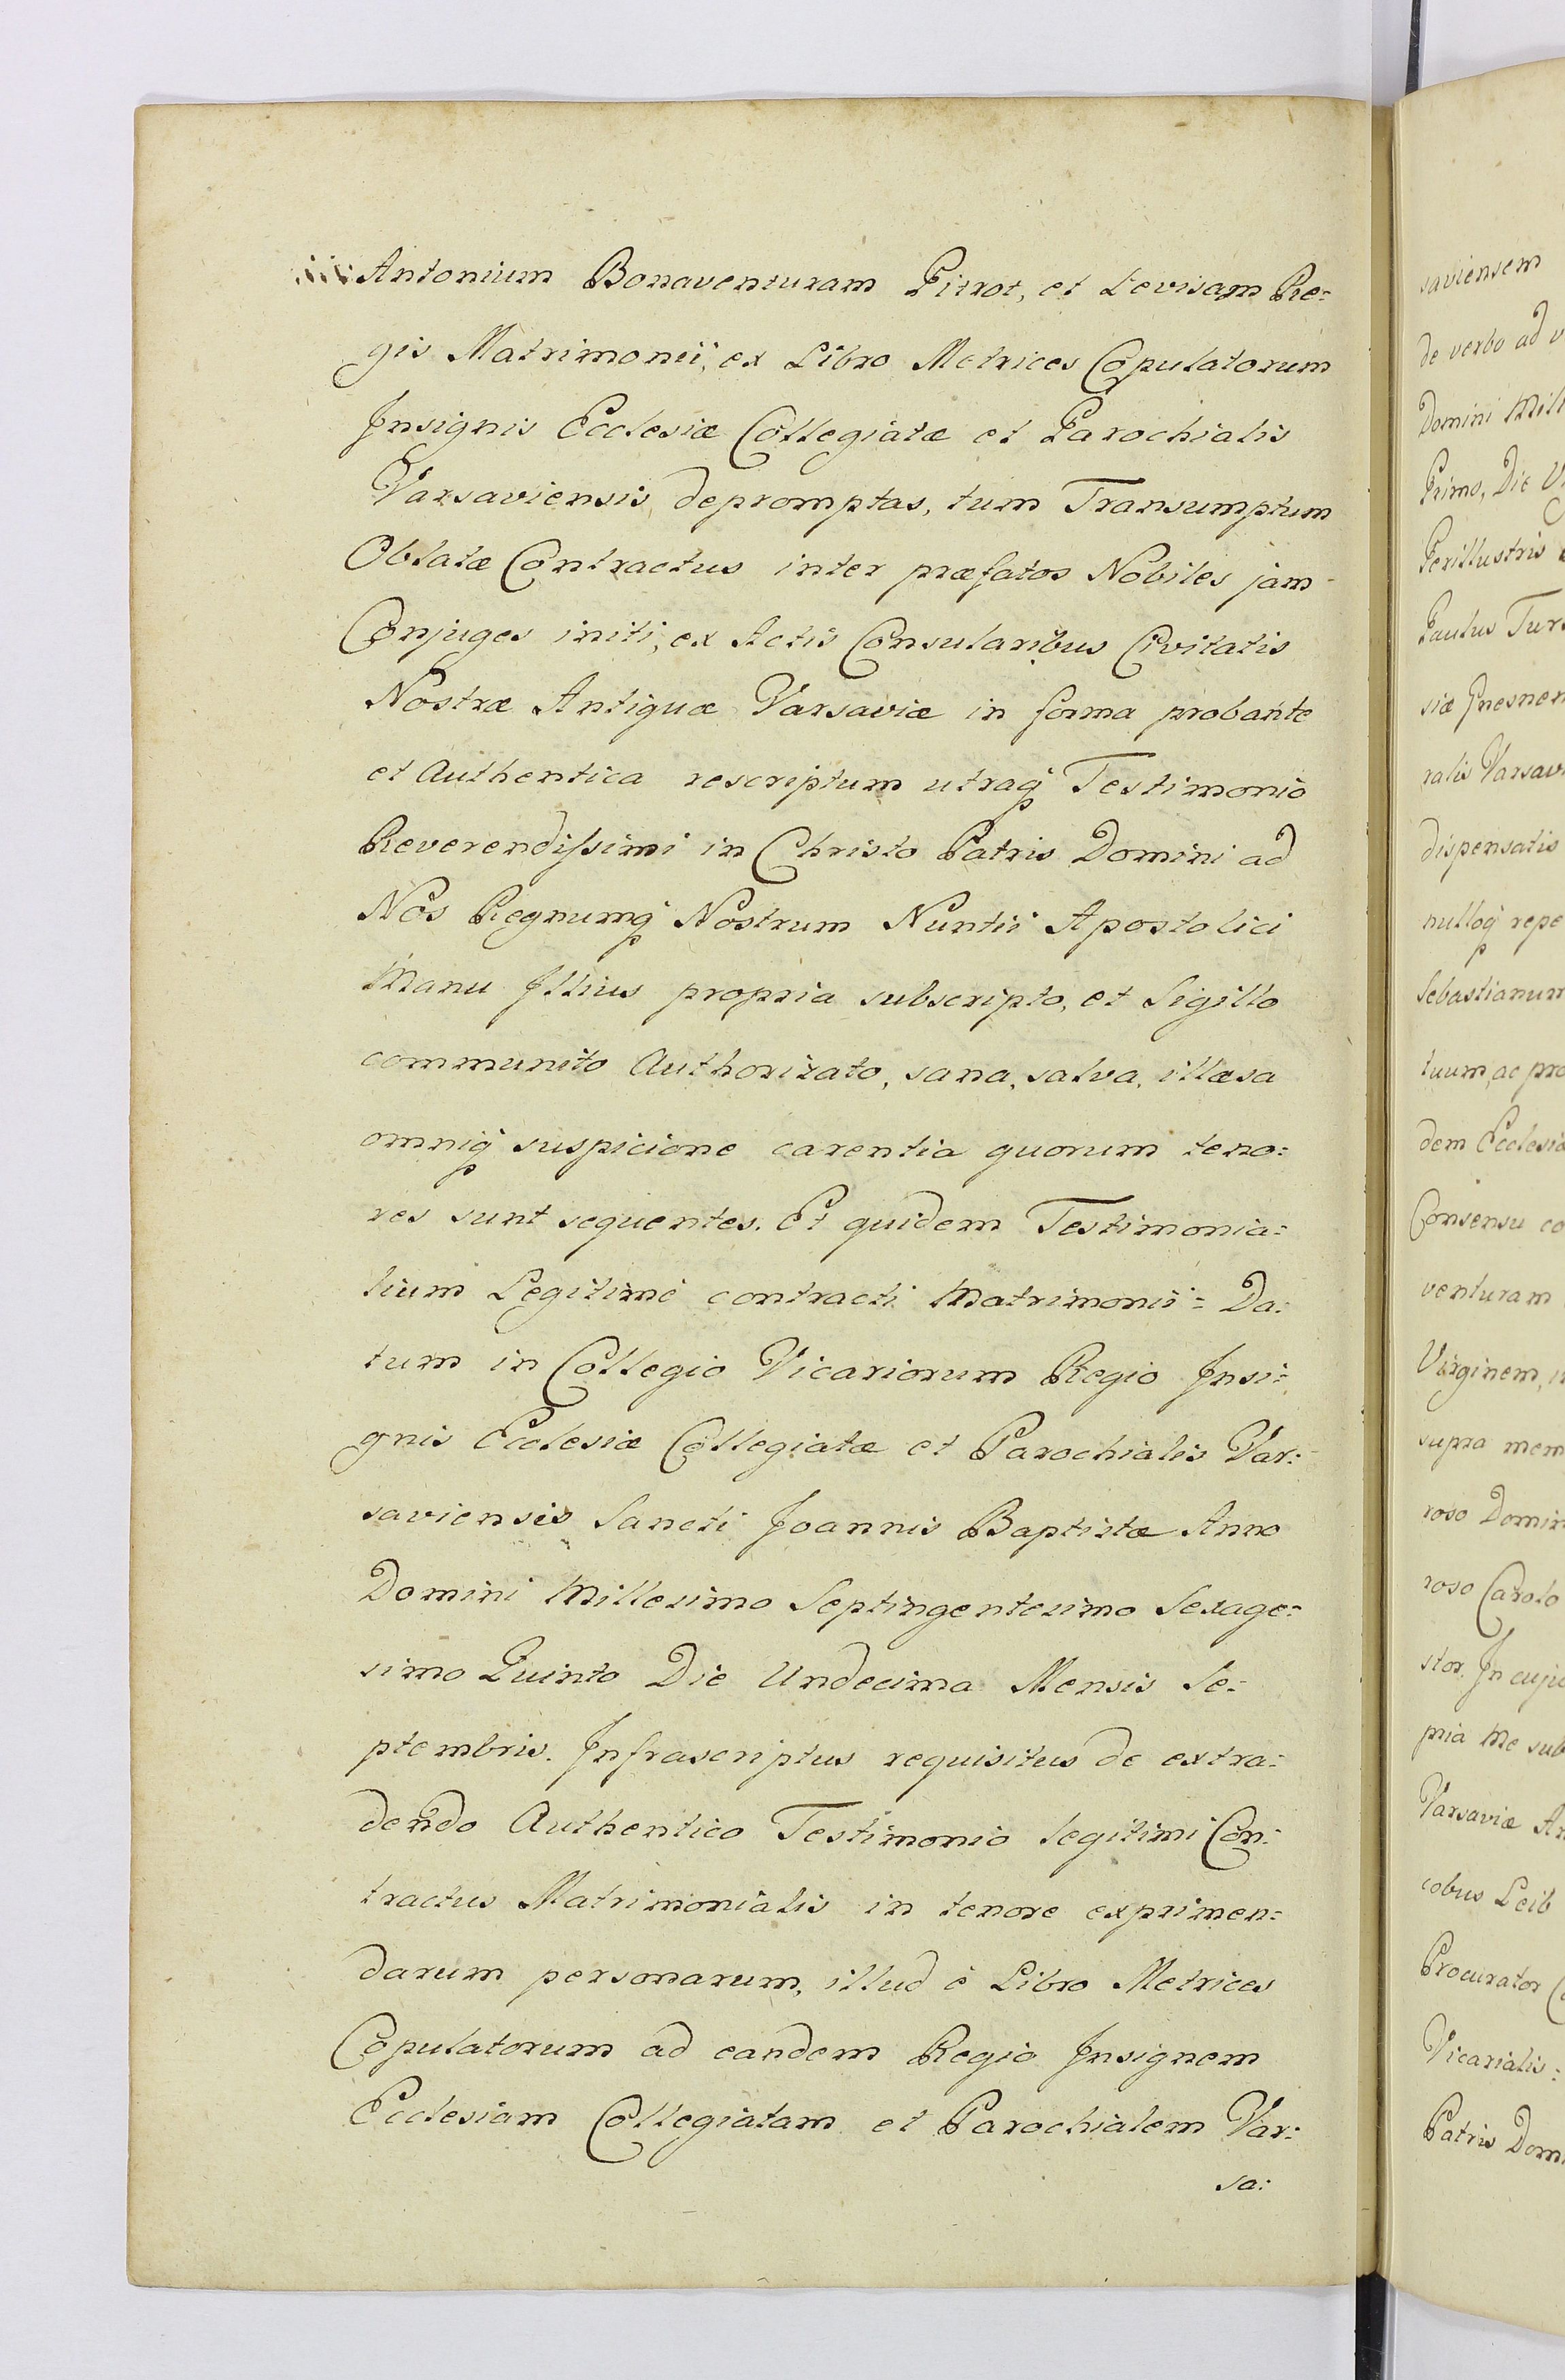 Antonium Bonaventuram Pitrot, et Levisam Re=
gis Matrimonii, ex Libro Metrices Copulatorum
Insignis Ecclesiæ Collegiatæ et Parochialis
Varsaviensis depromptas, tum Transumptum
Oblatæ Contractus inter præfatos Nobiles jam
Conjuges initi, ex Actis Consularibus Civitatis
Nostræ Antiquæ Varsaviæ in forma probante
et Authentica rescriptum utraq Testimonio
Reverendissimi in Christo Patris Domini ad
Nos Regnumq Nostrum Nuntii Apostolici
Manu Illius propria subscripto, et Sigillo
communito Authorizato, sana, salva, illæsa
omniq suspicione carentia quorum teno=
res sunt sequentes. Et quidem Testimonia=
lium Legitime contracti Matrimonii = Da=
tum in Collegio Vicariorum Regio Insi=
gnis Ecclesiæ Collegiatæ et Parochialis Var=
saviensis Sancti Joannis Baptistæ Anno
Domini Millesimo Septingentesimo Sexage=
simo Quinto Die Undecima Mensis Se=
ptembris. Infrascriptus requisitus de extra=
dendo Authentico Testimonio legitimi Con=
tractus Matrimonialis in tenore exprimen=
darum personarum, illud è Libro Metrices
Copulatorum ad eandem Regio Insignem
Ecclesiam Collegiatam et Parochialem Var=
sa:
saviensem
de verbo ad v
Domini Mill
Primo, Die Vi
Perillustris
Paulus Turs
siæ Gnesnen
ralis Varsavi
dispensatis
nulloq repe
Sebastianum
tuum, ac pro
dem Ecclesia
Consensu co
venturam
Virginem, in
supra mem
roso Domin
roso Carolo
stor. In cuju
pria Me sub
Varsaviæ An
cobus Leib
Procurator C
Vicarialis =
Patris Domi